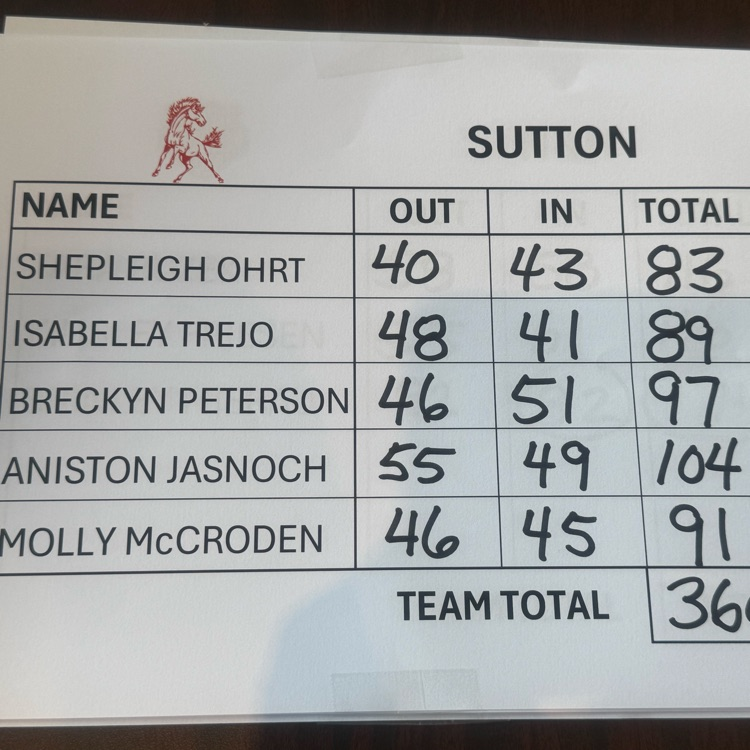 SUTTON
NAME OUT IN TOTAL
SHEPLEIGH OHRT 40 43 83
ISABELLA TREJO 48 41 89
BRECKYN PETERSON 46 51 97
ANISTON JASNOCH 55 49 104
MOLLY McCRODEN 46 45 91
TEAM TOTAL